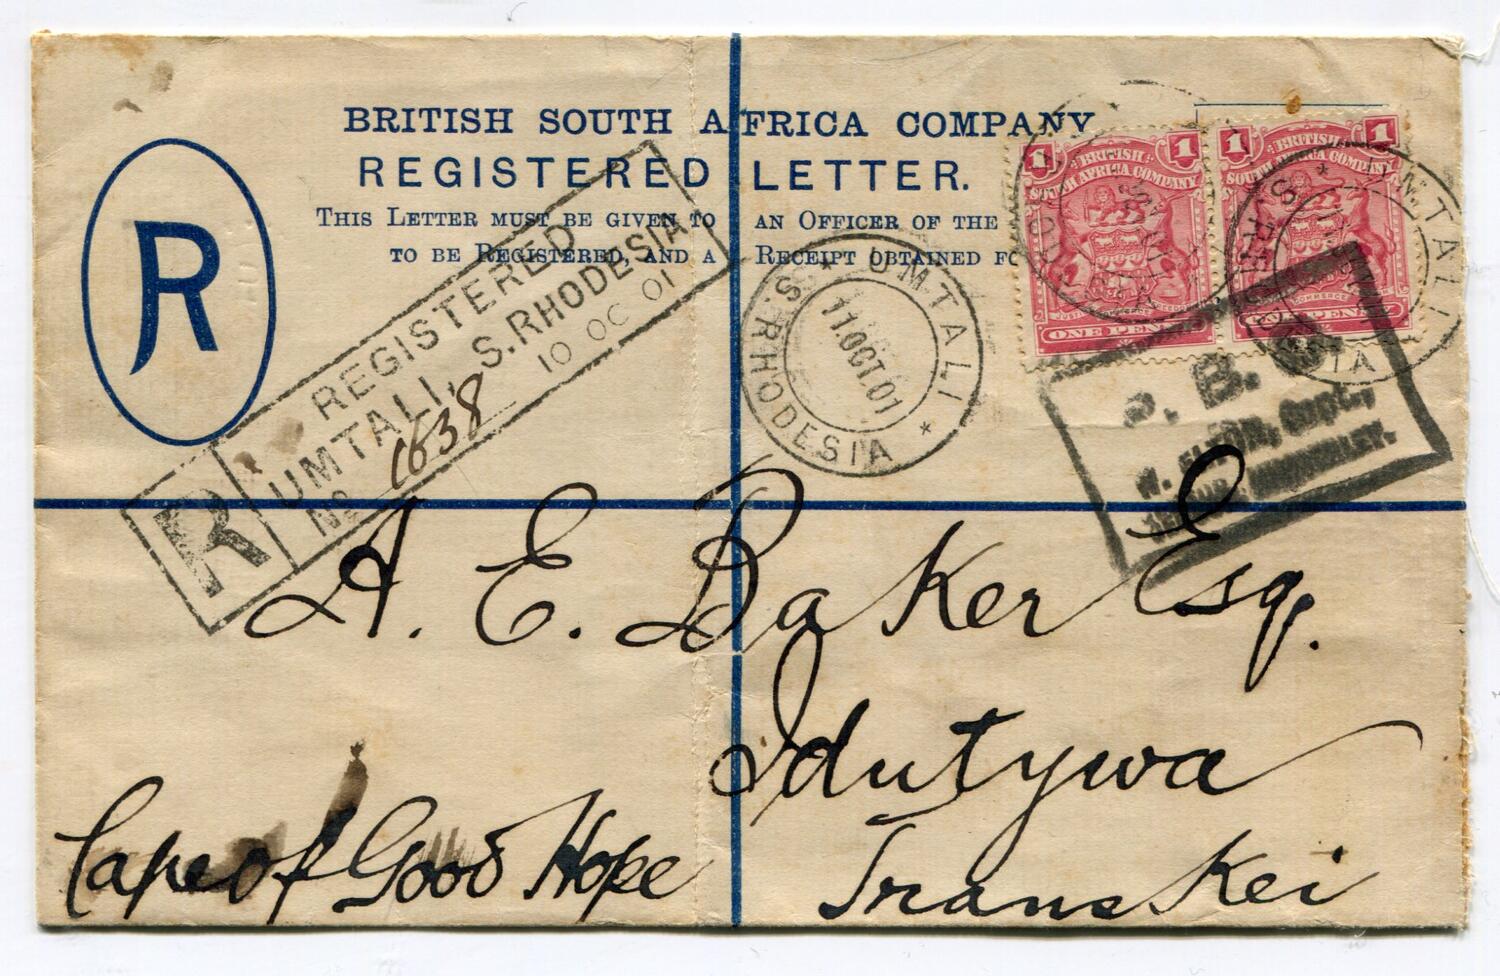 BRITISH SOUTH AFRICA COMPANY
REGISTERED LETTER.
THIS LETTER MUST BE GIVEN TO AN OFFICER OF THE
TO BE REGISTERED, AND A RECEIPT OBTAINED FO
R
1 BRITISH 1
SOUTH AFRICA COMPANY
ONE PENNY
1 BRITISH 1
SOUTH AFRICA COMPANY
COMMERCE
R
REGISTERED
UMTALI, S.RHODESIA
No 1638 10 OC 01
UMTALI
11 OCT. 01
S. RHODESIA
UMTALI
S. RHODESIA
P. B. C.
A. E. Baker Esq.
Idutywa
TransKei
Cape of Good Hope